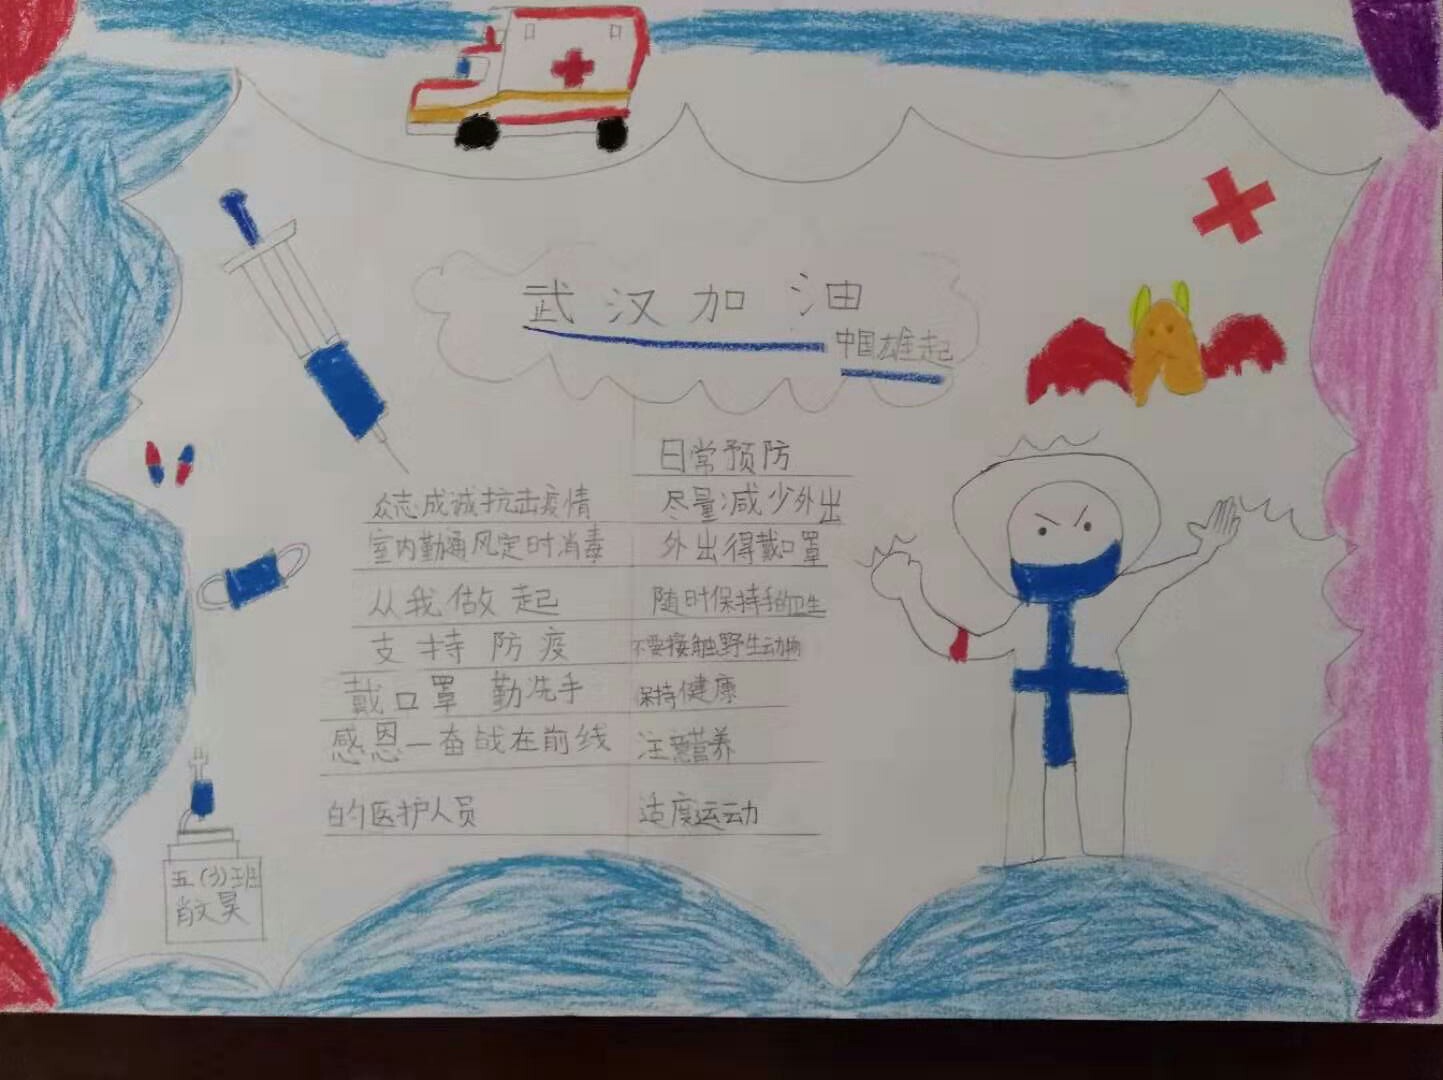 武汉加油
中国雄起
众志成诚抗击疫情
室内勤通风定时消毒
从我做起
支持防疫
戴口罩 勤洗手
感恩一奋战在前线
的医护人员
日常预防
尽量减少外出
外出得戴口罩
随时保持手的卫生
不要接触野生动物
保持健康
注意营养
适度运动
五(3)班
肖文昊